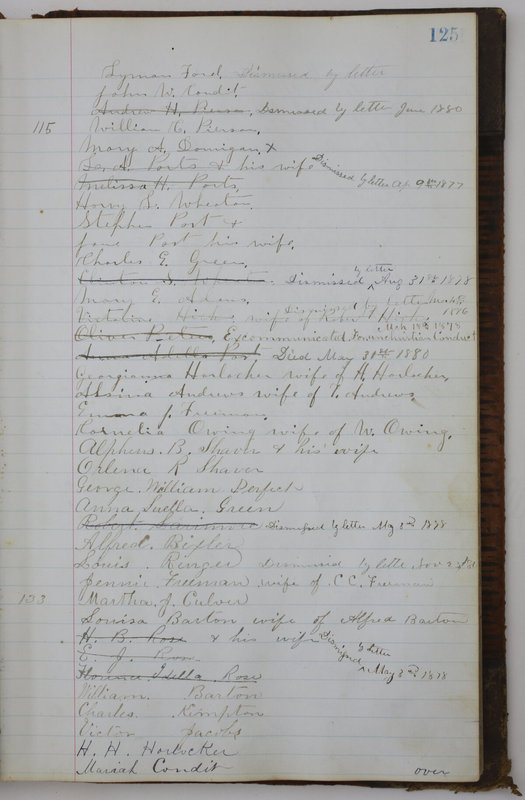 125
Lyman Ford. Dismissed by letter
John W. Condit
Andrew H. Pierson, Dismissed by letter June 1880
115 William C. Pierson,
Mary A. Dornigan, x
Ports & his wife Dismissed by letter Ap. 9th 1877
Melissa H. Ports,
Harry S. Wheaton.
Stephen Post &
Jane Post his wife.
Charles E. Green.
Dismissed by letter Aug 31st 1878
Mary E. Adams.
Victoline Hicks, wife of Robert Hicks, Dismissed by letter 1876
Oliver Peters, Excommunicated for unchristian Conduct Mch 18th 1878
Died May 30th 1880
Georgianna Horlocher wife of H. Horlocher,
Alsina Andrews wife of T. Andrews.
Emma J. Freeman.
Cornelia Owing wife of W. Owing.
Alpheus. B. Shaver & his wife
Orlena R Shaver
George William Perfect
Anna Luella. Green
Dismissed by letter May 3rd 1878
Alfred. Bixler
Louis. Ringer dismissed by letter Nov 2
Jennie Freeman wife of C. C. Freeman
133 Martha. J. Culver
Louisa Barton wife of Alfred Barton
H. B. Rose & his wife Dismissed by letter
E. J. Rose May 3rd 1878
Florence Idella. Rose
William. Barton
Charles. Kimpton
Victor Jacobs
H. H. Horlocker
Mariah Condit over